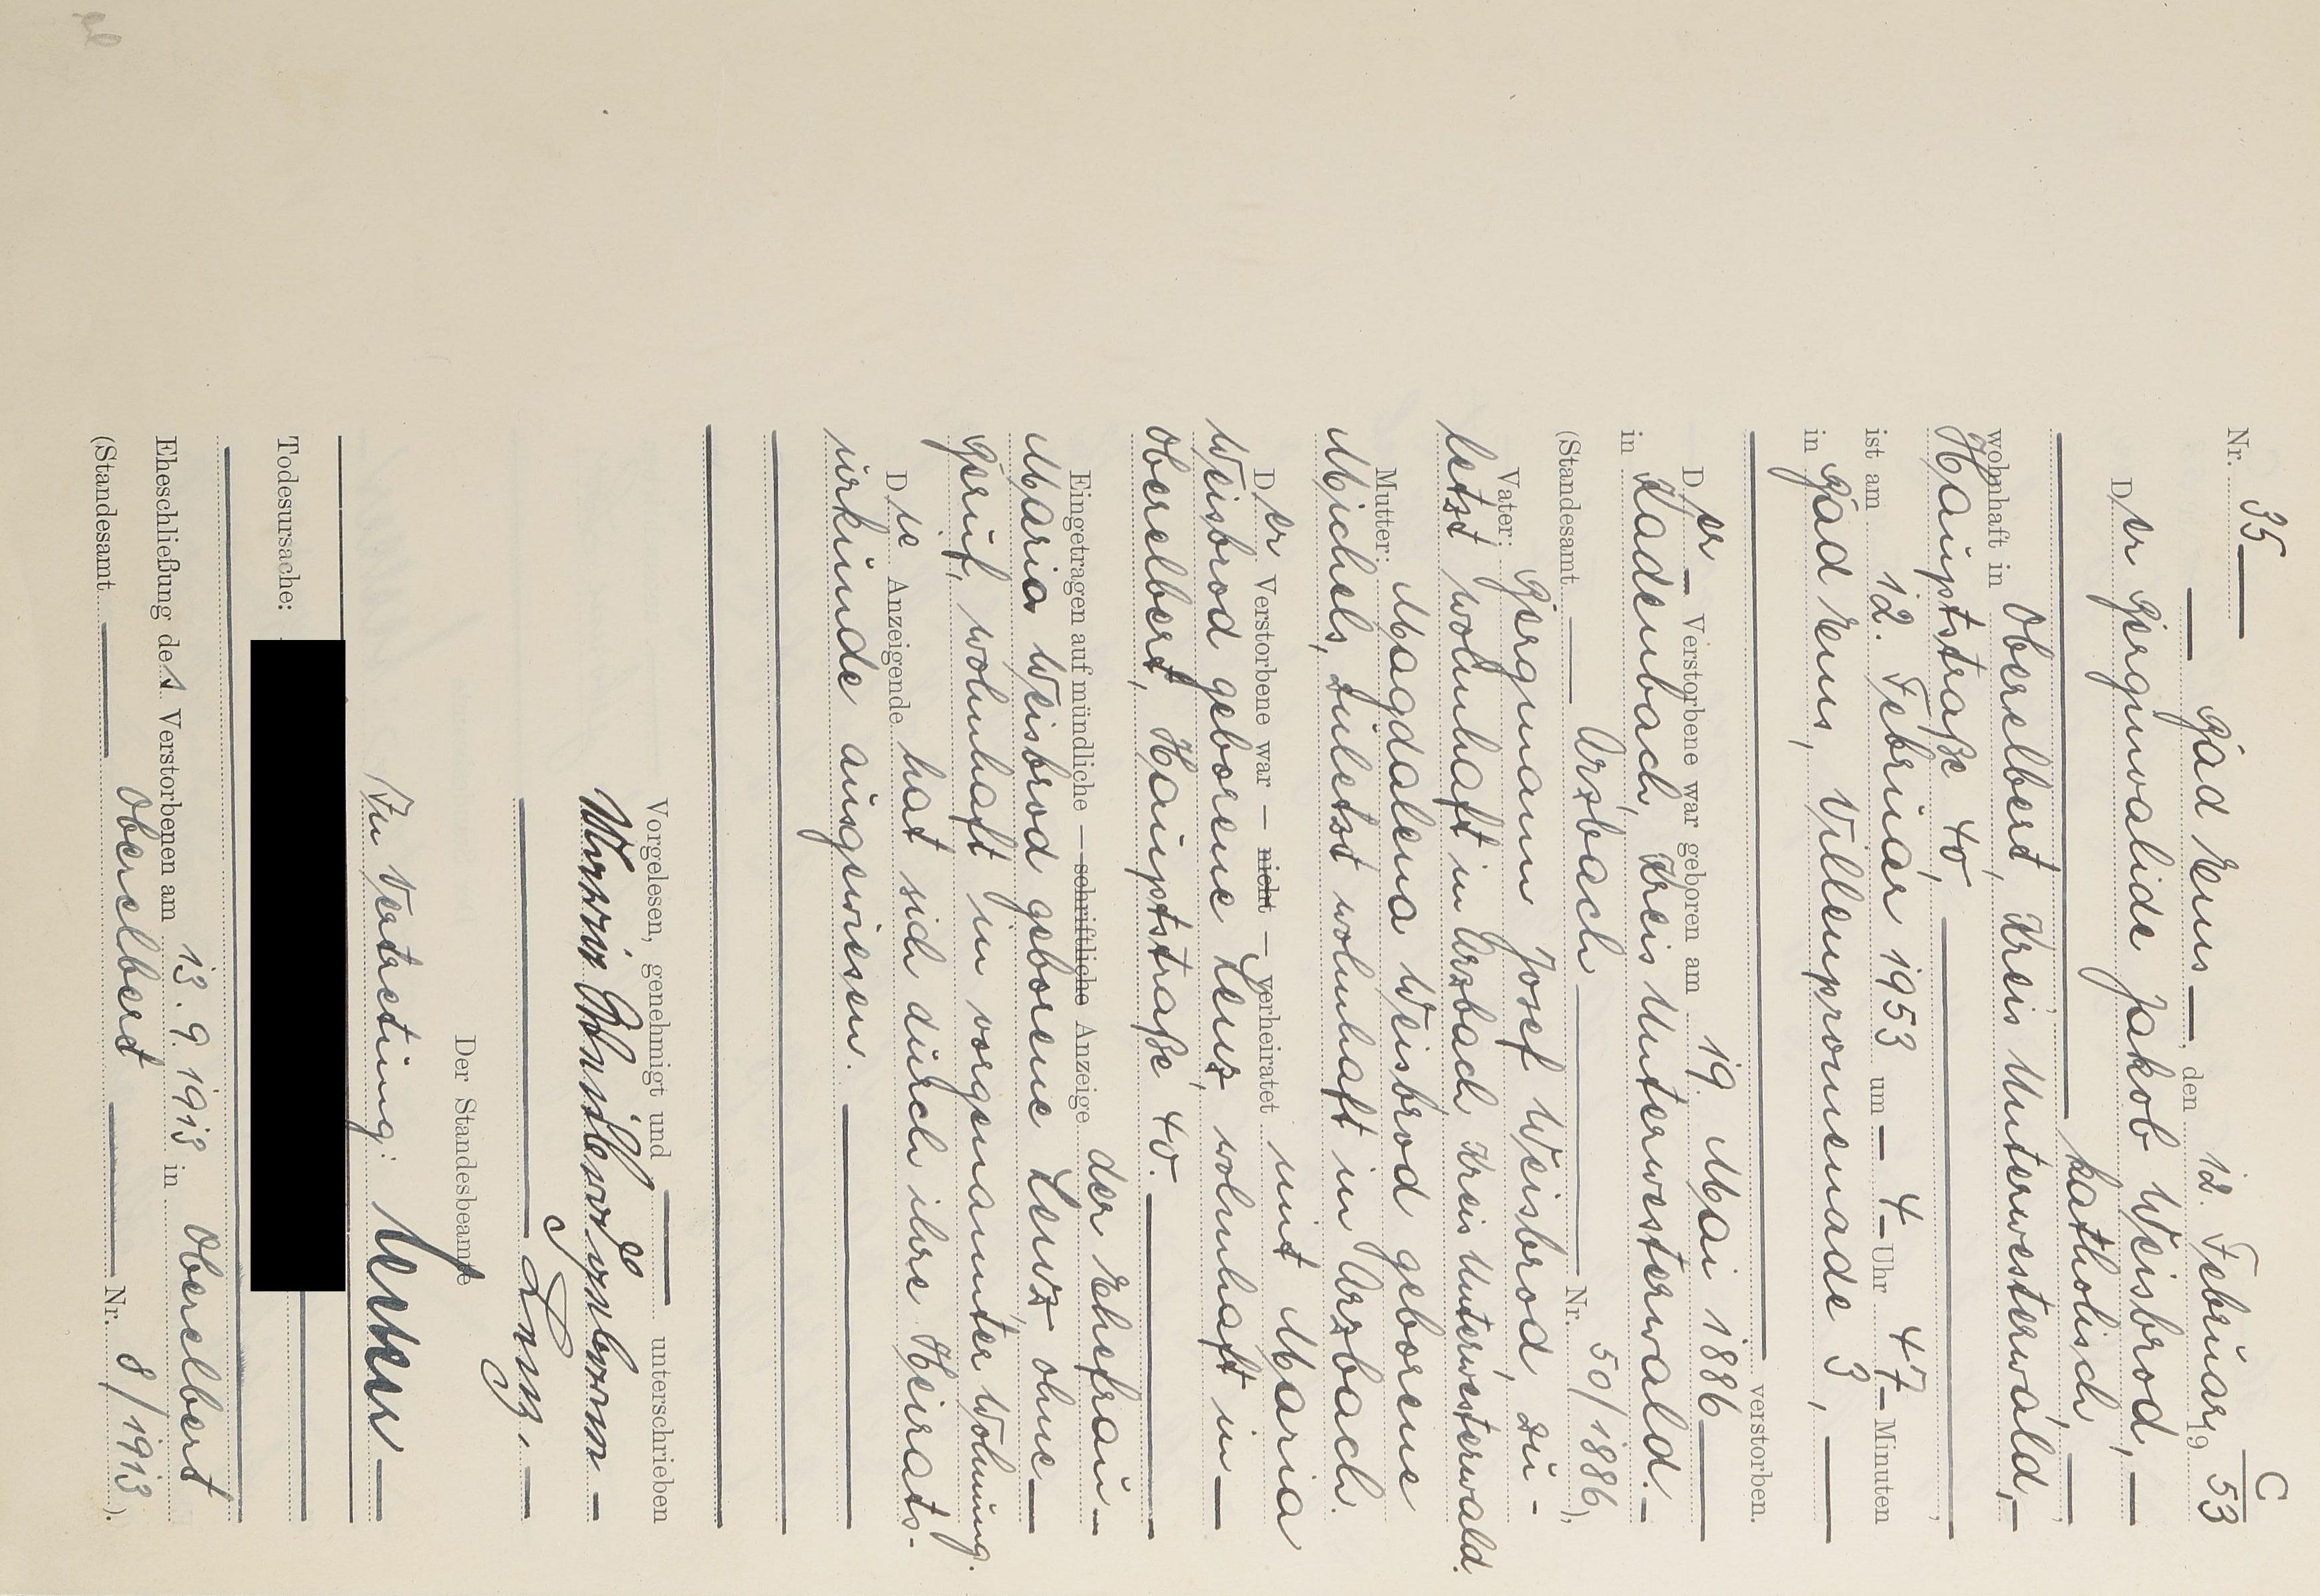 C
Nr. 35
Bad Ems, den 12. Februar 19 53
Der Berginvalide Jakob Weisbrod,
katholisch,
wohnhaft in Oberelbert, Kreis Unterwesterwald,
Hauptstraße 40,
ist am 12. Februar 1953 um 4 Uhr 47 Minuten
in Bad Ems, Villenpromenade 3,
verstorben.
Der Verstorbene war geboren am 19. Mai 1886
in Kadenbach, Kreis Unterwesterwald.
(Standesamt Arzbach Nr. 50/1886),
Vater: Bergmann Josef Weisbrod, zu-
letzt wohnhaft in Arzbach, Kreis Unterwesterwald.
Mutter: Magdalena Weisbrod geborene
Michels, zuletzt wohnhaft in Arzbach.
Der Verstorbene war — nicht — verheiratet mit Maria
Weisbrod geborene Lenz, wohnhaft in
Oberelbert, Hauptstraße 40.
Eingetragen auf mündliche — schriftliche Anzeige der Ehefrau
Maria Weisbrod geborene Lenz ohne
Beruf, wohnhaft in vorgenannter Wohnung.
Die Anzeigende hat sich durch ihre Heirats-
urkunde ausgewiesen.
Vorgelesen, genehmigt und unterschrieben
Lenz.
Der Standesbeamte
In Vertretung:
Todesursache:
Eheschließung des Verstorbenen am 13. 9. 1913 in Oberelbert
(Standesamt Oberelbert Nr. 8/1913).